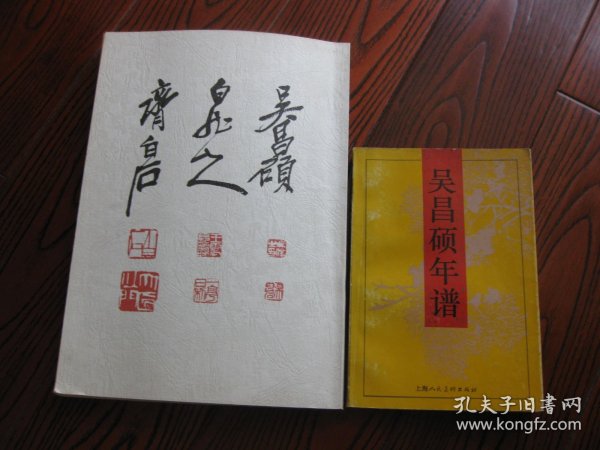 吳昌碩
白龍山人
齊白石
吴昌硕年谱
上海人民美術出版社
孔夫子旧書网
www.kongfz.com